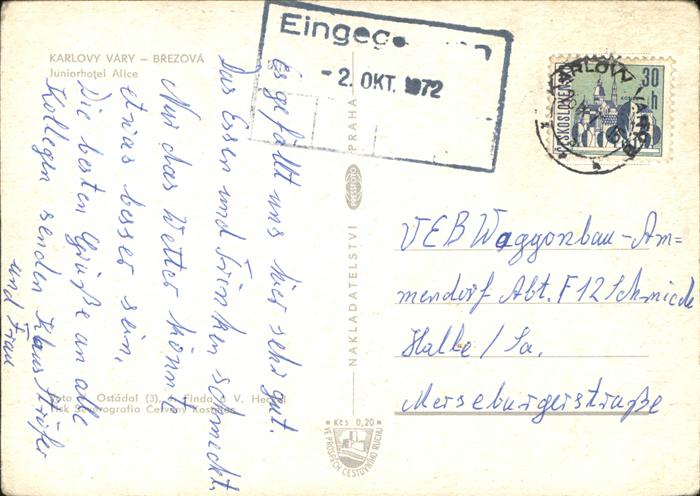 KARLOVY VARY – BŘEZOVÁ
Juniorhotel Alice
Es gefällt uns hier sehr gut.
Das Essen und Trinken schmeckt.
Nur das Wetter könnte
etwas besser sein,
Die besten Grüße an alle
Kollegen senden Klaus
und Frau
Foto Ostádal (3), J. Finda, V.
Tisk Severografia Červený Kostelec
Eingegangen
-2. OKT. 1972
NAKLADATELSTVÍ PRESSFOTO PRAHA
Kčs 0,20
VE PROSPĚCH CESTOVNÍHO RUCHU
KARLOVY VARY
ČESKOSLOVENSKO
30 h
VEB Waggonbau-Am=
mendorf Abt. F12 Schmiede
Halle/Sa.
Merseburgerstraße